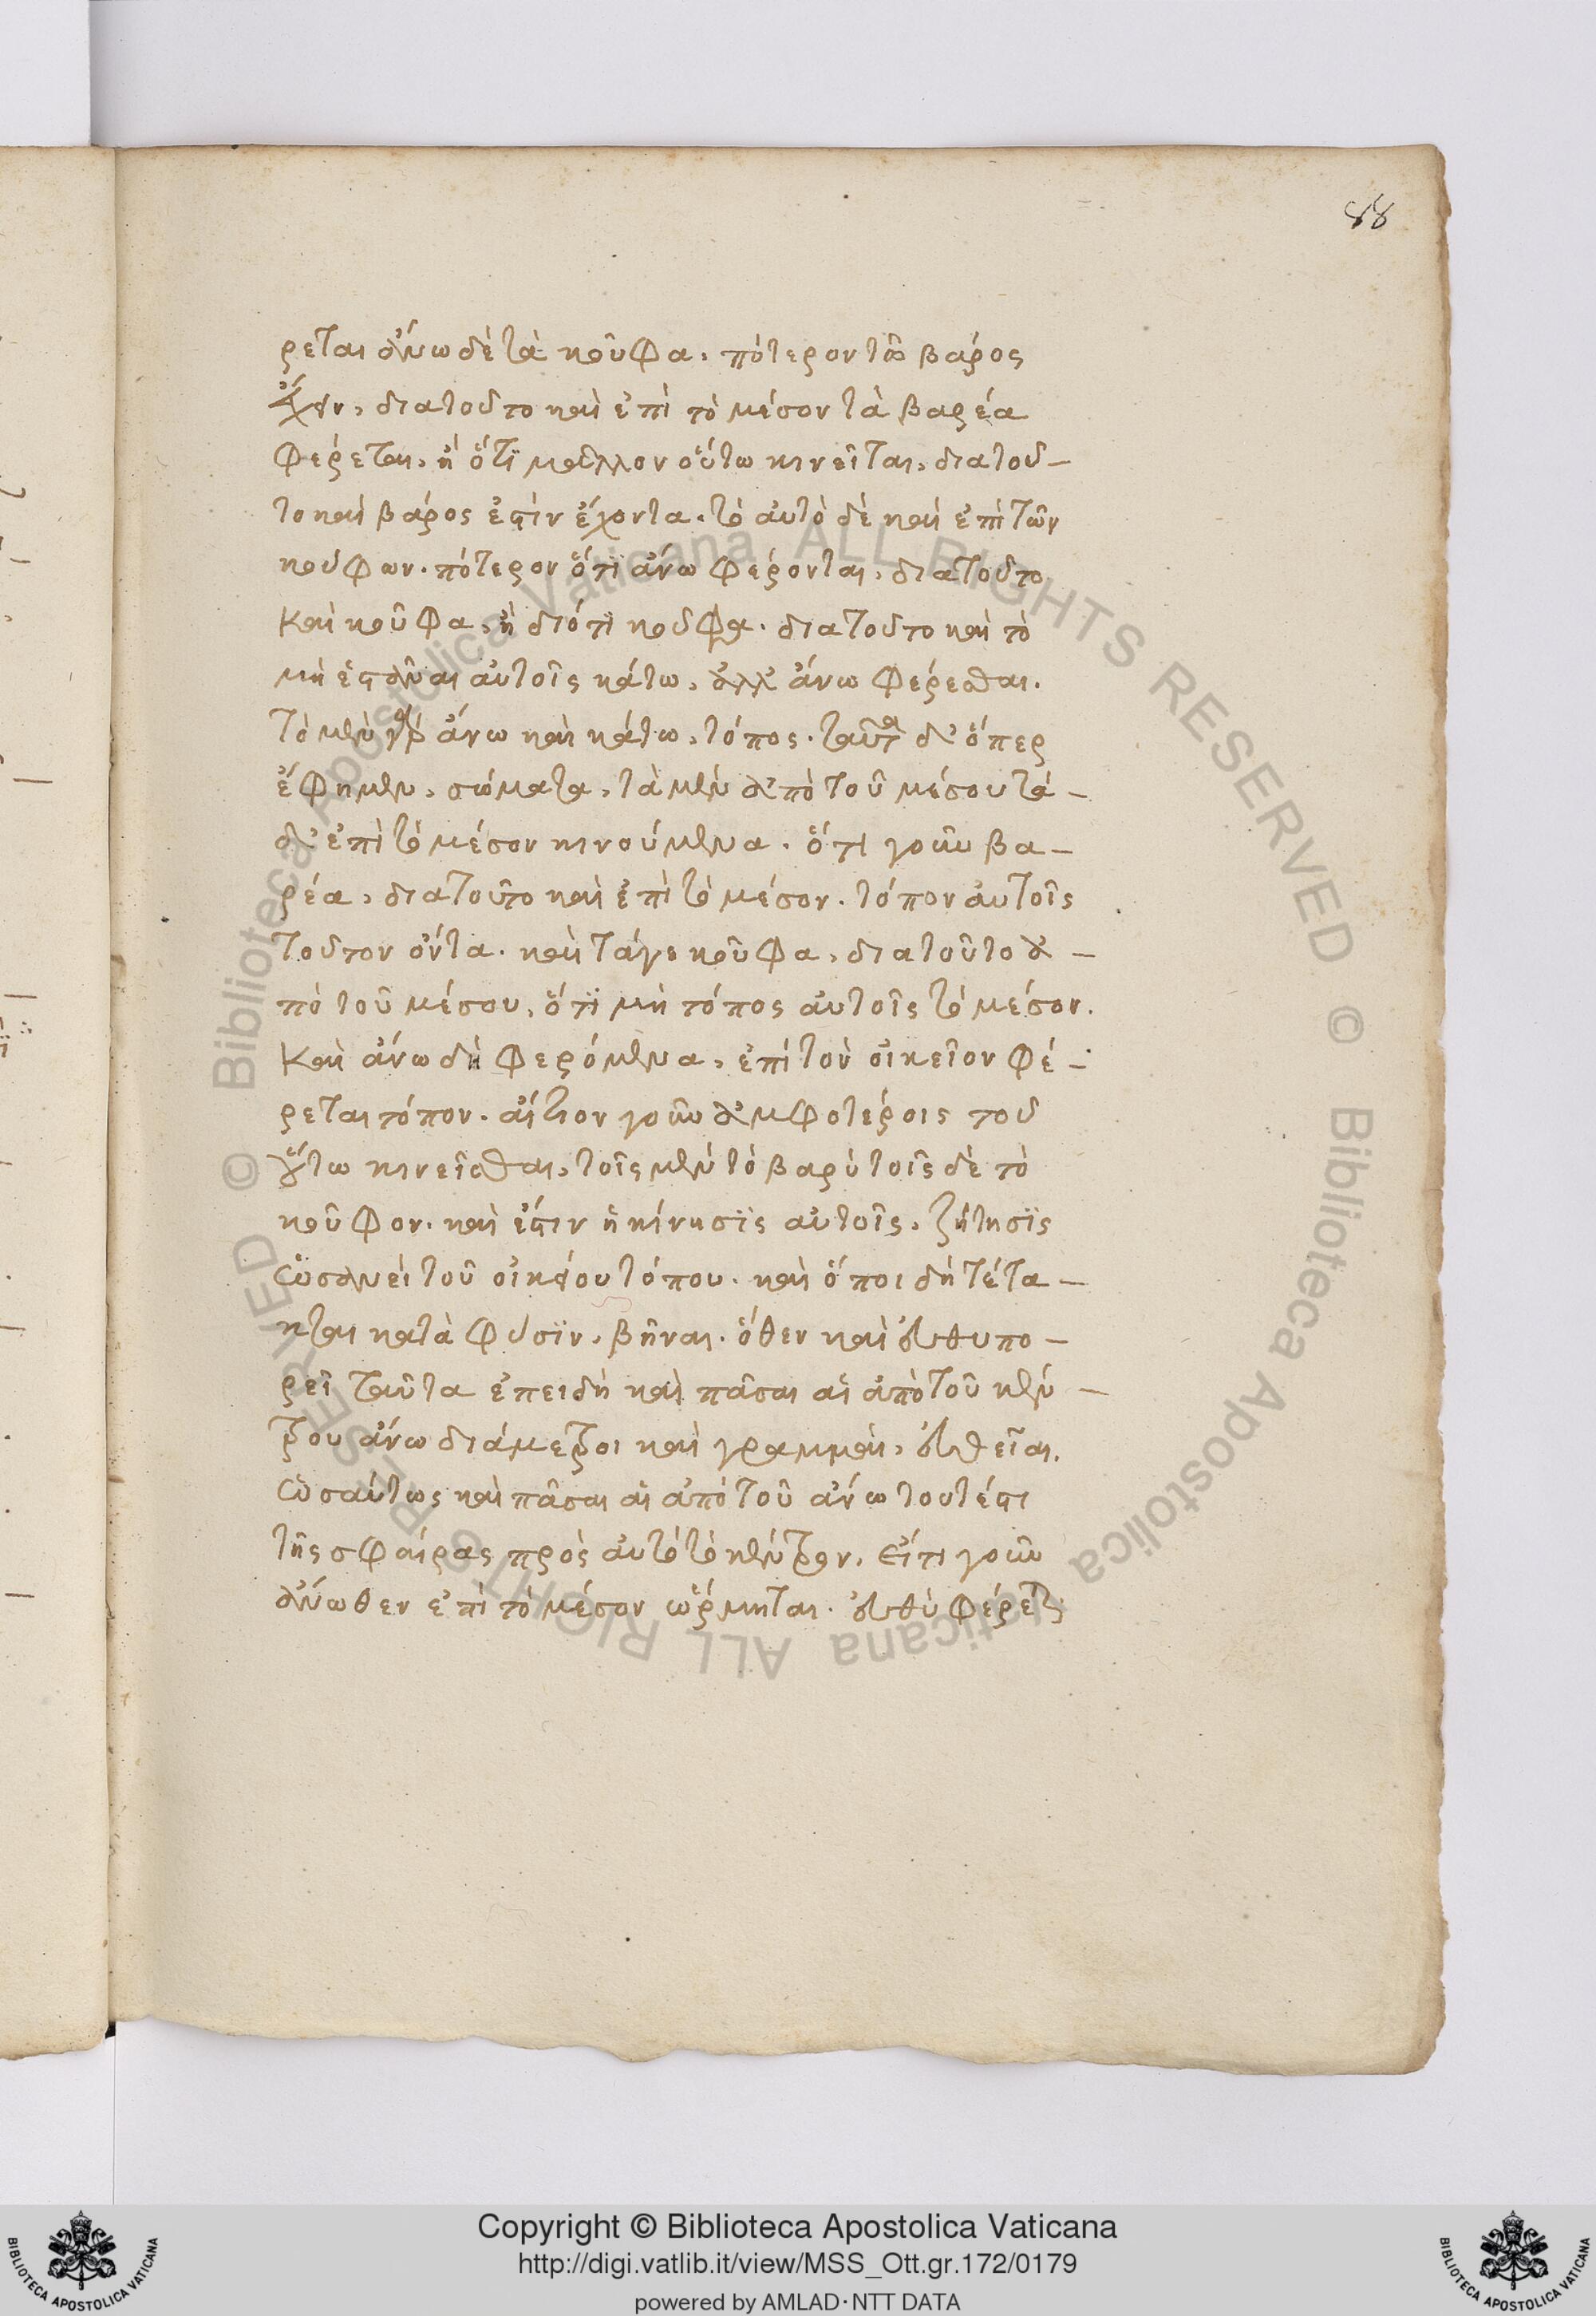 88
ρεται ἄνω δὲ τὰ κοῦφα, πότερον τῶ βάρος
ἔχειν, διατοῦτο καὶ ἐπὶ τὸ μέσον τὰ βαρέα
φέρεται, ἢ ὅτϊ μᾶλλον οὕτω κινεῖται, διατοῦ–
το καὶ βάρος ἐστὶν ἔχοντα. τὸ αὐτὸ δὲ καὶ ἐπὶ τῶν
κούφων. πότερον ὅτι ἄνω φέρονται, διατοῦτο
καὶ κοῦφα, ἢ διότι κοῦφα. διατοῦτο καὶ τὸ
μὴ ἑστάναι αὐτοῖς κάτω, ἀλλ' ἄνω φέρεσθαι.
Τὸ μὲν γὰρ ἄνω καὶ κάτω, τόπος. ταῦτα δ' ὅπερ
ἔφημεν, σώματα, τὰ μὲν ἀπὸ τοῦ μέσου τὰ –
δ' ἐπὶ τὸ μέσον κινούμενα. ὅτι γοῦν βα –
ρέα, διατοῦτο καὶ ἐπὶ τὸ μέσον. τόπον αὐτοῖς
τοῦτον ὄντα. καὶ τάγε κοῦφα, διατοῦτο ἀ –
πὸ τοῦ μέσου, ὅτϊ μὴ τόπος αὐτοῖς τὸ μέσον.
Καὶ ἄνω δὴ φερόμενα, ἐπὶ τὸν οἰκεῖον φέ –
ρεται τόπον. αἴτιον γοῦν ἀμφοτέροις τοῦ
οὕτω κινεῖσθαι, τοῖς μὲν τὸ βαρὺ τοῖς δὲ τὸ
κοῦφον. καὶ ἔστιν ἡ κίνησϊς αὐτοῖς, ζήτησϊς
ὡσανεὶ τοῦ οἰκείου τόπου. καὶ ὅποι δὴ τέτα –
κται κατὰ φύσϊν, βῆναι. ὅθεν καὶ εὐθυπο –
ρεῖ ταῦτα ἐπειδὴ καὶ πᾶσαι αἱ ἀπὸ τοῦ κέν –
τρου ἄνω διάμετροι καὶ γραμμαὶ, εὐθεῖαι.
ὡσαύτως καὶ πᾶσαι αἱ ἀπὸ τοῦ ἄνω τουτέστι
τῆς σφαίρας πρὸς αὐτὸ τὸ κέντρον. εἴτι γοῦν
ἄνωθεν ἐπὶ τὸ μέσον ὥρμηται. εὐθὺ φέρεται
© Biblioteca Apostolica Vaticana ALL RIGHTS RESERVED © Biblioteca Apostolica Vaticana ALL RIGHTS RESERVED
BIBLIOTECA APOSTOLICA VATICANA
Copyright © Biblioteca Apostolica Vaticana
http://digi.vatlib.it/view/MSS_Ott.gr.172/0179
powered by AMLAD·NTT DATA
BIBLIOTECA APOSTOLICA VATICANA